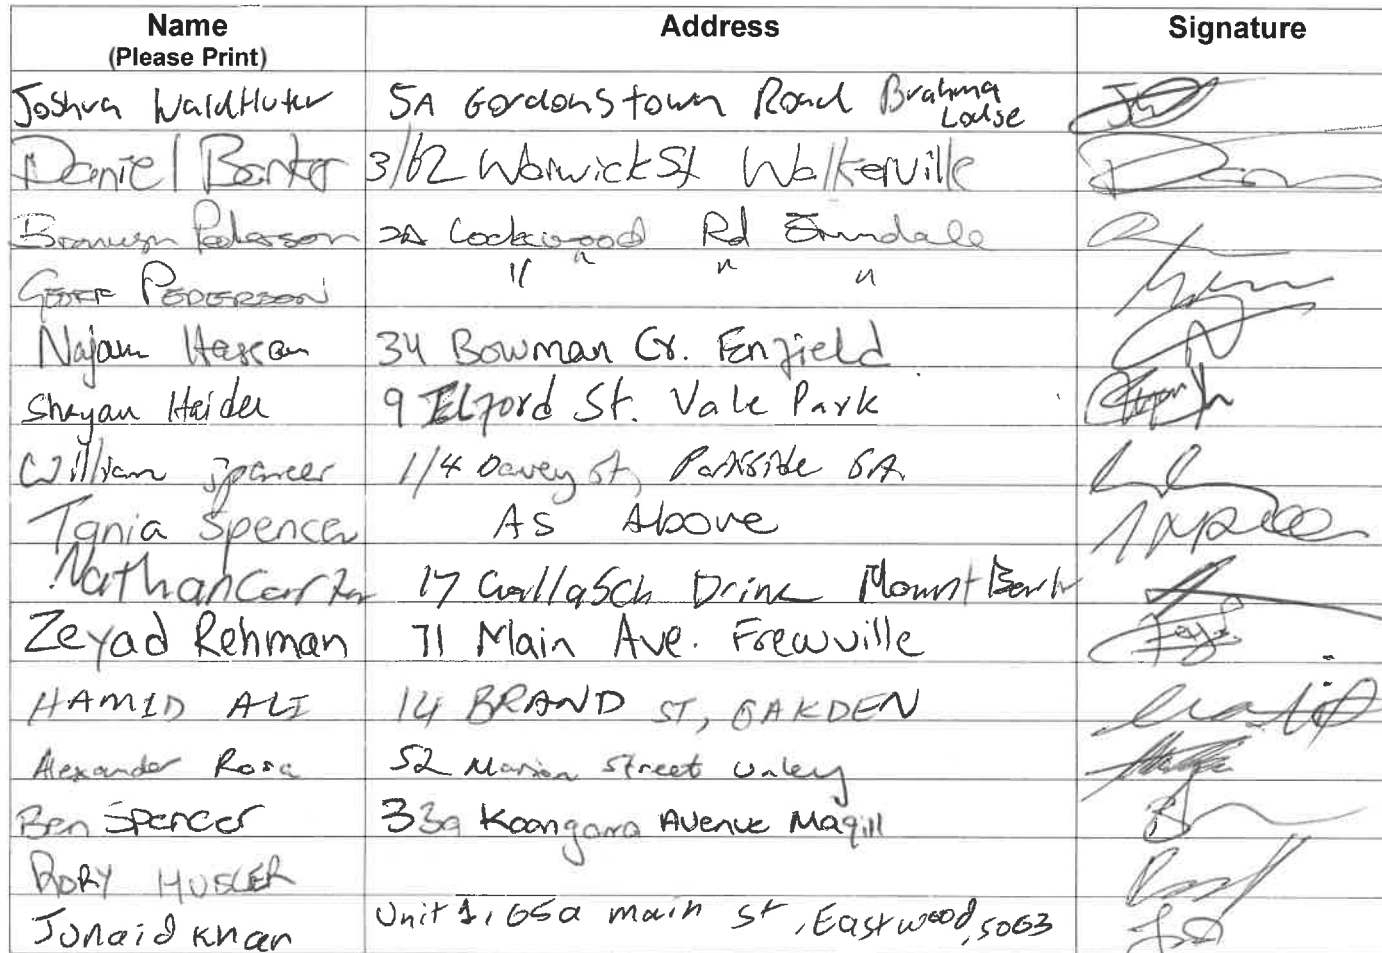 Name Address Signature
(Please Print)
Joshua Waldhuter 5A Gordonstown Road Brahma Lodge
Daniel Barker 3/62 Warwick St Walkerville
Bronwyn Pederson 2A Lockwood Rd Erindale
GEOFF PEDERSON " " " "
Najam Hassan 34 Bowman Cr. Enfield
Shayan Haider 9 Ilford St. Vale Park
William Spencer 1/4 Davey St, Parkside SA
Tania Spencer As Above
Nathan Carter 17 Gallasch Drive Mount Bark
Zeyad Rehman 71 Main Ave. Frewville
HAMID ALI 14 BRAND ST, OAKDEN
Alexander Rosa 52 Marion Street Unley
Ben Spencer 33a Koongara Avenue Magill
RORY
Junaid Khan Unit 1, 65a main st, Eastwood, 5063